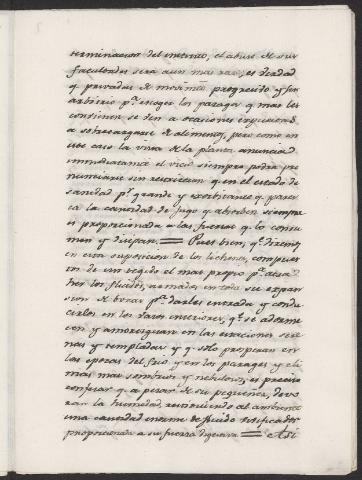 terminacion del instinto, el abuso de sus
facultades sera aun mas raro; es verdad
q.e privadas de movim.to progresivo y sin
arbitrio p.a escoger los parages q.e mas les
convienen se ven a ocasiones expuestas
a sobrecargarse de alimentos, pero como en
este caso la vista de la planta anuncia
inmediatam.te el vicio siempre podra pro
nunciarse sin restriccion q.e en el estado de
sanidad p.r grande y exorbitante q.e parez
ca la cantidad de jugo q.e absorben, siempre
es proporcionada a las fuerzas q.e lo consu
men y disipan. = Pues bien, q.e diremos
en esta suposicion de los lichenes, compues
tos de un tegido el mas propio p.a atra
her los fluidos, armados en toda su expan
sion de bocas p.a darles entrada y condu
cirlos en los vasos interiores, q.e se adorme
cen y amortiguan en las estaciones sere
nas y templadas y q.e solo prosperan en
las epocas del frio y en los parages y cli
mas mas sombrios y nebulosos; es preciso
confesar q.e a pesar de su pequeñez, devo
ran la humedad, restituyendo al ambiente
una cantidad enorme de fluido rectificado
proporcionada a su fuerza digestiva = Asi